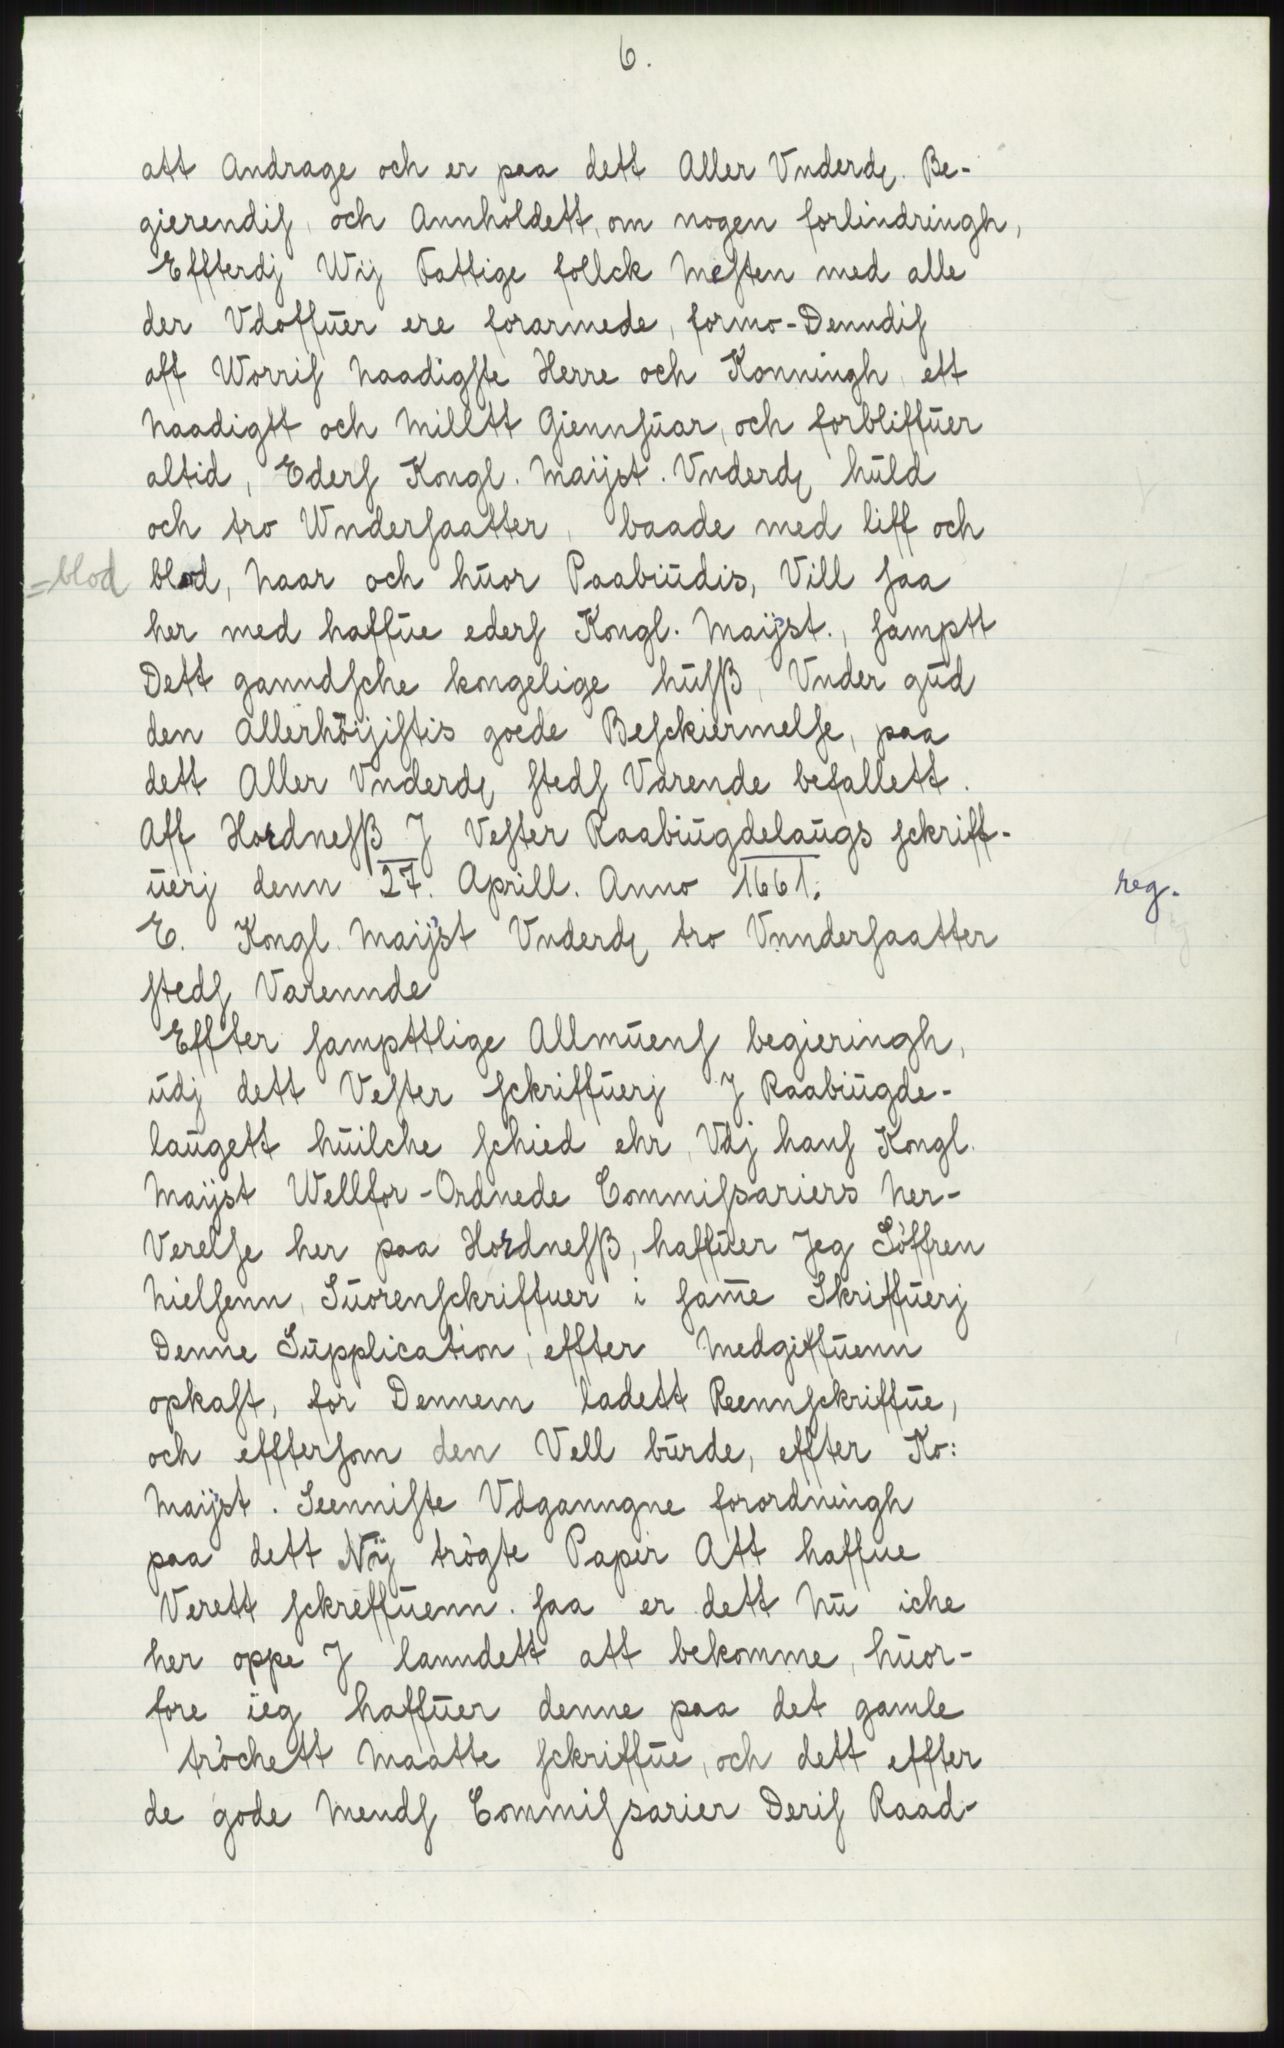 6.
att Andrage och er paa dett Aller Vnderdꝭ. Be-
gierendiſ, och Annholdett, om nogen forlindringh,
Effterdj Wij Fattige follck Meſten med alle
der Vdoffuer ere forarmede, formo-Denndiſ
aff Worriſ Naadigſte Herre och Konningh, ett
Naadigtt och Milltt Giennſuar, och forbliffuer
altid, Ederſ Kongl. Maijst. Vnderdꝭ huld
och tro Wnderſaatter, baade med liff och
=blod blod, Naar och huor Paabiudis, Vill ſaa
her med haffue ederſ Kongl. Maijst., ſamptt
Dett ganndſche kongelige huſß, Vnder gud
den Allerhöijiſtis goede Beſckiermelſe, paa
dett Aller Vnderdꝭ ſtedſ Varende befallett.
Aff Hordneſß J Veſter Raabiugdelaugs ſckriff-
uerj denn 27. Aprill. Anno 1661. reg.
E. Kongl. Maijst Vnderdꝭ tro Vnnderſaatter
ſtedſ Varennde
Effter ſampttlige Allmuenſ begieringh,
udj dett Veſter ſckriffuerj J Raabiugde-
laugett huilche ſchied ehr, Vdj hanſ Kongl.
Maijst Wellfor-Ordnede Commiſsariers Her-
Verelſe her paa Hordneſß, haffuer Jeg Söffren
Nielſenn, Suorenſckriffuer i ſam̅e Skriffuerj
Denne Supplication, effter Medgiffuenn
opkaſt, for Dennem ladett Reennſckriffue,
och efftersom den Vell burde, effter Ko:
Maijst. Seenniſte Vdganngne forordningh
paa dett Nÿ trögte Papir Att haffue
Verett ſckreffuenn. ſaa er dett Nu iche
her oppe J lanndett att bekomme, huor-
fore ieg haffuer denne paa det gamle
tröchett Maatte ſckriffue, och dett effter
de gode Mendſ Commiſsarier Deriſ Raad-